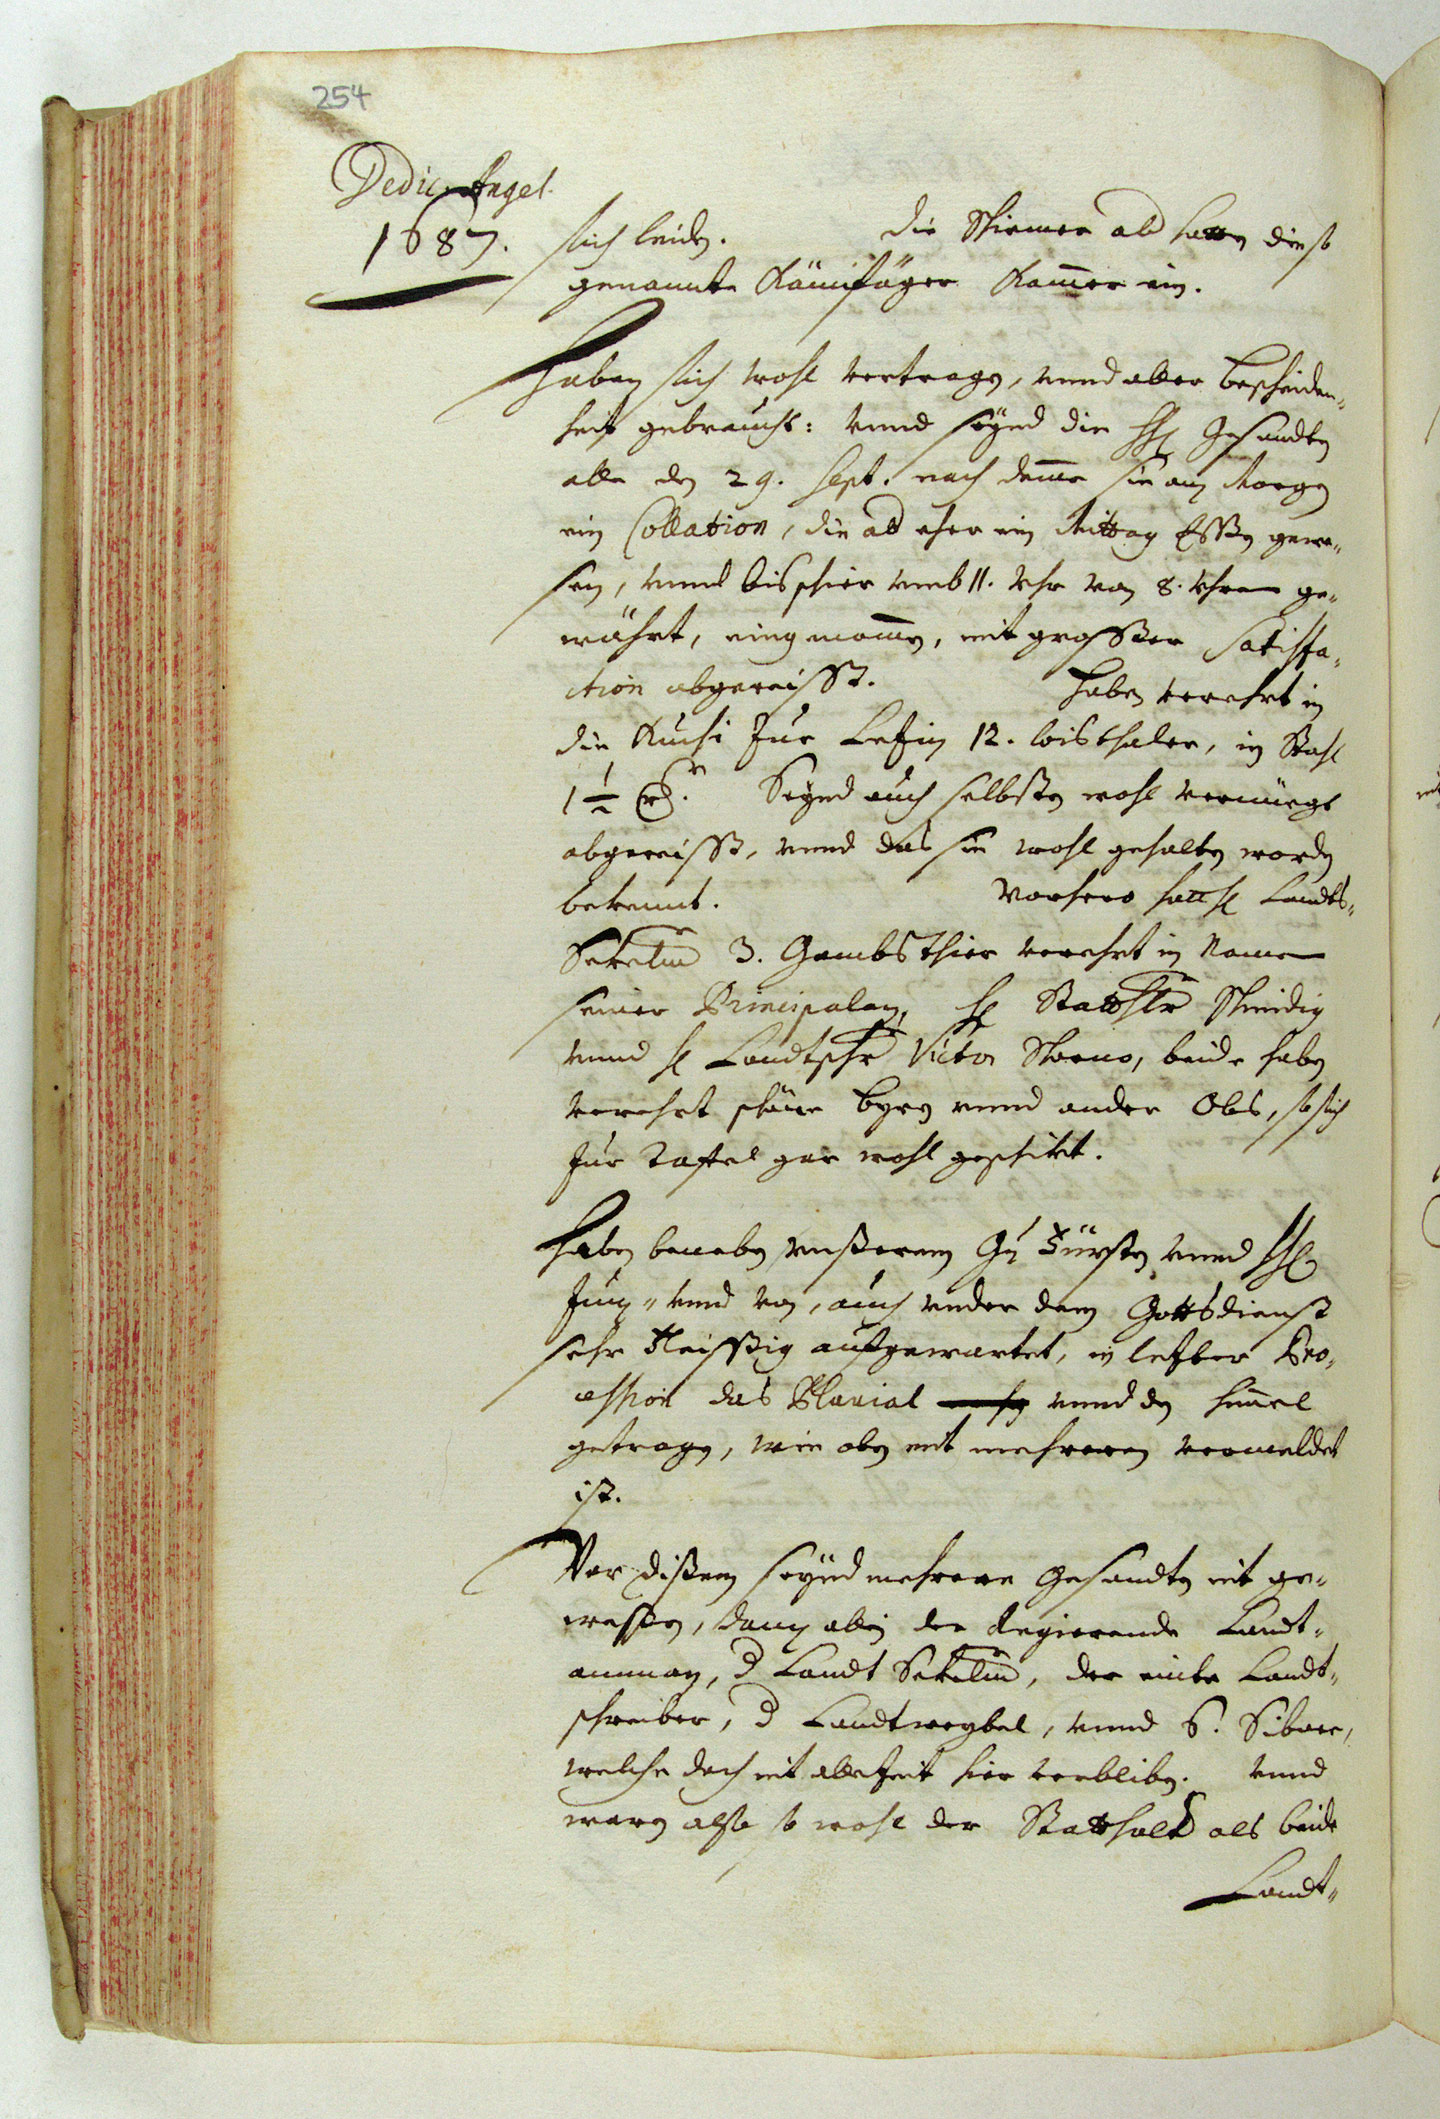 254
Dedic. Angel.
1687.
sich leiden. Die Schirmer ald hatten die so
genannte Kämifäger Kammer ein.
Haben sich wohl vertragen, vnnd aller bescheiden-
heit gebraucht: vnnd seÿnd die HH. Gesandten
alle den 29. Sept. nach deme sie am Morgen
ein Collation, die ald eher ein Mittag Essen gewe-
sen, vnnd bis schier vmb 11. Vhr von 8. Vhren ge-
währt, eingenommen, mit grosser Satisfa-
ction abgereisst. Haben verehrt in
die Kuchi zur Letzin 12. louisthaler, in Stahl
1 1/2 Seynd auch selbsten wohl vernüegt
abgereisst, vnnd das sie wohl gehalten worden
bekennt. Vorhero hatt H. Landts-
Sekelm 3. Gambsthier verehrt in Namen
seiner Principalen, H. Statthlr Schmidig
vnnd H. Landtschr Victor Schorno, beide haben
verehrt schöne byren vnnd ander Obs, so sich
zur Taffel gar wohl geschikt.
Haben beneben vnserem Gn. Fürsten vnnd HH.
zue- vnnd von, auch vnder dem Gottsdienst
sehr Fleissig aufgewartet, in letster Pro-
cession das Pluvial vnnd den himel
getragen, wie oben mit mehrerem vermeldet
ist.
Vor disem seÿnd mehrere Gesandten mit ge-
wesen, dann allein der Regierende Landt-
amman, d Landt Sekelm, der einte Landt-
schreiber, d Landtweybel, vnnd
welche doch nit allezeit hier verbliben. Vnnd
waren also so wohl der Statthalt als beide
Landt-